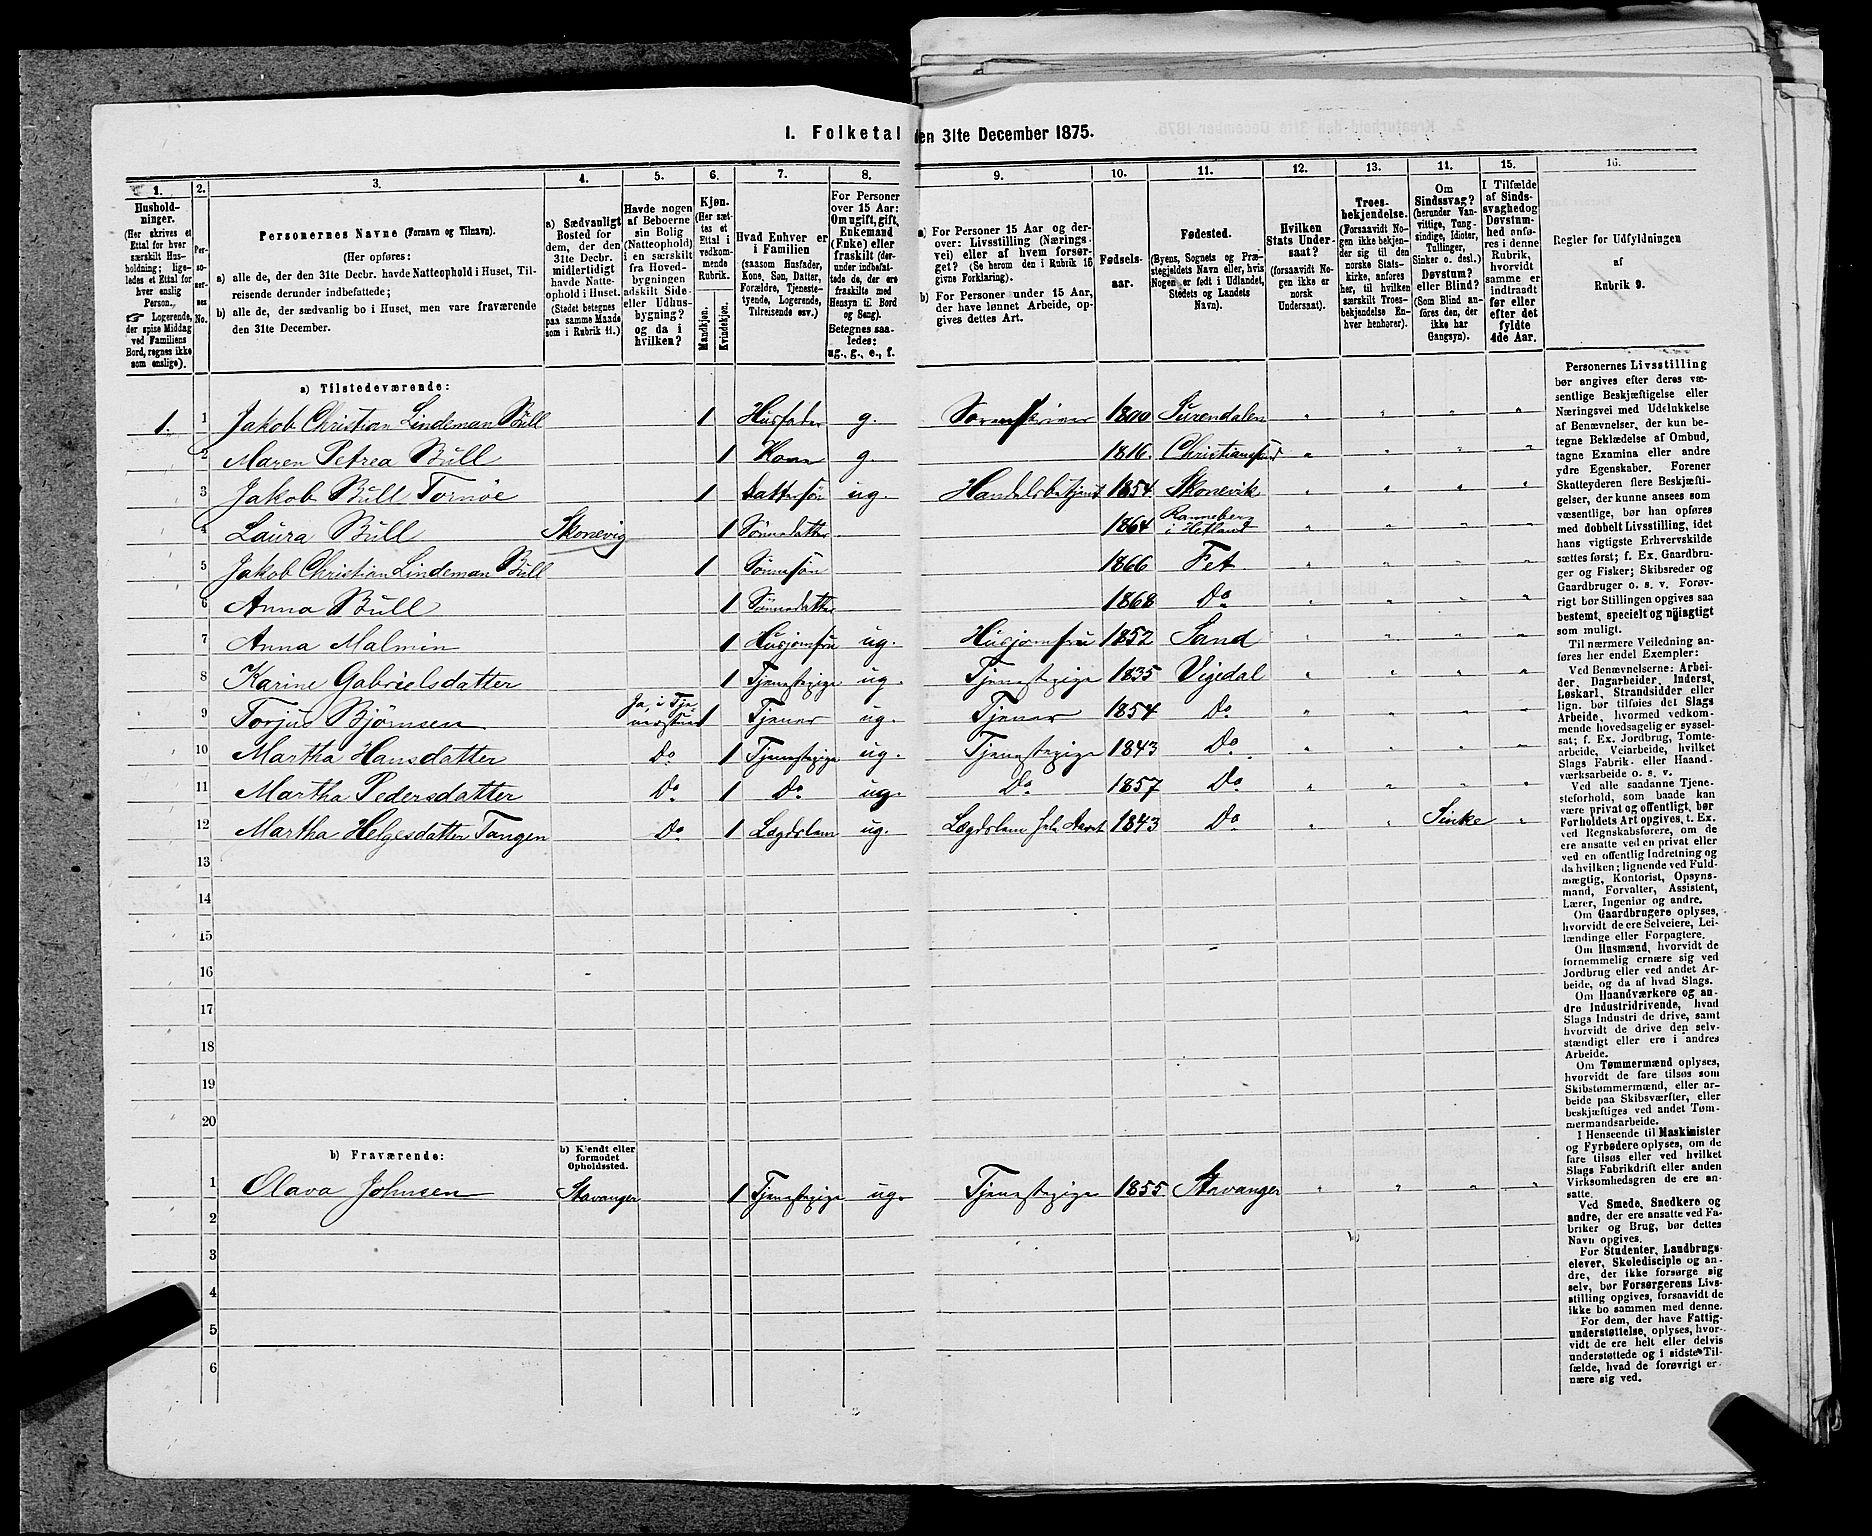 1. Folketal den 31te December 1875.
1. 2. 3. 4. 5. 6. 7. 8. 9. 10. 11. 12. 13. 11. 15. 16.
Husholdninger.
(Her skrives et
Ettal for hver
særskilt Husholdning;
ligeledes et Ettal for
hver enslig
Person.
☞ Logerende,
der spise Middag
ved Familiens
Bord, regnes ikke
som enslige).
Personernes No.
Personernes Navne (Fornavn og Tilnavn).
(Her opføres:
a) alle de, der den 31te Decbr. havde Natteophold i Huset, Tilreisende derunder indbefattede;
b) alle de, der sædvanlig bo i Huset, men vare fraværende
den 31te December.
a) Sædvanligt
Bosted for
dem, der den
31te Decbr.
midlertidigt
havde Natteophold i Huset.
(Stedet betegnes
paa samme Maade
som i Rubrik 11.)
Havde nogen
af Beboerne
sin Bolig
(Natteophold)
i en særskilt
fra Hovedbygningen
adskilt Side-
eller Udhusbygning?
og da i
hvilken?
Kjøn.
(Her sættes et
Ettal i
vedkommende
Rubrik.
Mandkjøn.
Kvindekjøn.
Hvad Enhver er
i Familien
(saasom Husfader,
Kone, Søn, Datter,
Forældre, Tjenestetyende, Logerende,
Tilreisende osv.)
For Personer
over 15 Aar:
Om ugift, gift,
Enkemand
(Enke) eller
fraskilt (derunder indbefattede de, der ere
fraskilte med
Hensyn til Bord
og Seng).
Betegnes saaledes:
ug., g., e., f.
a) For Personer 15 Aar og derover: Livsstilling (Næringsvei) eller af hvem forsørget? (Se herom den i Rubrik 16
givne Forklaring).
b) For Personer under 15 Aar,
der have lønnet Arbeide, opgives dettes Art.
Fødselsaar.
Fødested.
(Byens, Sognets og Præstegjeldets Navn eller, hvis
Nogen er født i Udlandet,
Stedets og Landets
Navn).
Hvilken
Stats Undersaat?
(forsaavidt Nogen ikke er
norsk
Undersaat).
Troesbekjendelse.
(Forsaavidt Nogen ikke bekjender sig til den
norske Statskirke, anføres
her, til hvilken
særskilt Troesbekjendelse Enhver henhører).
Om
Sindssvag?
(herunder Vanvittige, Tungsindige, Idioter,
Tullinger,
Sinker o. desl.)
Døvstum?
eller Blind?
(Som Blind anføres den, der
ikke har
Gangsyn).
I Tilfælde
af Sindssvaghed og
Døvstumhed anføres i denne
Rubrik,
hvorvidt
samme er
indtraadt
før eller
efter det
fyldte
4de Aar.
Regler for Udfyldningen
af
Rubrik 9.
a) Tilstedeværende:
1. 1 Jakob Christian Lindeman Bull 1 Husfader g. Sorenskriver Surendalen
2 Maren Petrea Bull 1 Kone g. 1816. Christiansund
3 Jakob Bull Tornöe 1 Dattersön ug. Handelsbetjent 1854. Skonevik
4 Laura Bull Skonevig 1 Sönnedatter 1864 Ranneberg i Hetland
5 Jakob Christian Lindeman Bull 1 Sönnesön 1866 Fet
6 Anna Bull 1 Sönnedatter 1868 Do
7 Anna Malmin 1 Husjomfru ug. Husjomfru 1852 Sand
8 Karine Gabrielsdatter 1 Tjenestepige ug. Tjenestepige 1835 Vigedal
9 Torjus Björnsen Ja, i 1 Tjener ug. Tjener 1854 Do
10 Martha Hansdatter Do 1 Tjenestepige ug. Tjenestepige 1843 Do
11 Martha Pedersdatter Do 1 Do ug. Do 1857 Do
12 Martha Helgesdatter Tangen Do 1 Lægdslem ug. Lægdslem hele Aaret 1843 Do Sinke
13
14
15
16
17
18
19
20
b) Fraværende:
b) Kjendt eller
formodet
Opholdssted.
1 Olava Johnsen Stavanger 1 Tjenestepige ug. Tjenestepige 1855 Stavanger
2
3
4
5
6
Personernes Livsstilling
bør angives efter deres væsentlige Beskjæftigelse eller
Næringsvei med Udelukkelse
af Benævnelser, der kun betegne Beklædelse af Ombud,
tagne Examina eller andre
ydre Egenskaber. Forener
Skatteyderen flere Beskjæftigelser, der kunne ansees som
væsentlige, bør han opføres
med dobbelt Livsstilling, idet
hans vigtigste Erhvervskilde
sættes først; f. Ex. Gaardbruger og Fisker; Skibsreder og
Gaardbruger o. s. v. Forøvrigt bør Stillingen opgives saa
bestemt, specielt og nøiagtigt
som muligt.
Til nærmere Veiledning anføres her endel Exempler:
Ved Benævnelserne: Arbeider, Dagarbeider, Inderst,
Løskarl, Strandsidder eller
lign. bør tilføies det Slags
Arbeide, hvormed vedkommende hovedsagelig er sysselsat; f. Ex. Jordbrug, Tomtearbeide, Veiarbeide, hvilket
Slags Fabrik- eller Haandværksarbeide o. s. v.
Ved alle saadanne Tjenesteforhold, som baade kan
være privat og offentligt, bør
Forholdets Art opgives, t. Ex.
ved Regnskabsførere, om de
ere ansatte ved en privat eller
ved en offentlig Indretning og
da hvilken; lignende ved Fuldmægtig, Kontorist, Opsynsmand, Forvalter, Assistent,
Lærer, Ingeniør og andre.
Om Gaardbrugere oplyses,
hvorvidt de ere Selveiere, Leilændinge eller Forpagtere.
Om Husmænd, hvorvidt de
fornemmelig ernære sig ved
Jordbrug eller ved andet Arbeide, og da af hvad Slags.
Om Haandværkere og andre Industridrivende, hvad
Slags Industri de drive, samt
hvorvidt de drive den selvstændigt eller ere i andres
Arbeide.
Om Tømmermænd oplyses,
hvorvidt de fare tilsøs som
Skibstømmermænd, eller arbeide paa Skibsværfter, eller
beskjæftiges ved andet Tømmermandsarbeide.
I Henseende til Maskinister
og Fyrbødere oplyses, om de
fare tilsøs eller ved hvilket
Slags Fabrikdrift eller anden
Virksomhedsgren de ere ansatte.
Ved Smede, Snedkere og
andre, der ere ansatte ved Fabriker og Brug, bør dettes
Navn opgives.
For Studenter, Landbrugselever, Skoledisciple og andre, der ikke forsørge sig
selv, bør Forsørgerens Livsstilling opgives, forsaavidt de
ikke bo sammen med denne.
For dem, der have Fattigunderstøttelse, oplyses, hvorvidt de ere helt eller delvis
understøttede og i sidste Tilfælde, hvad de forøvrigt ernære sig ved.